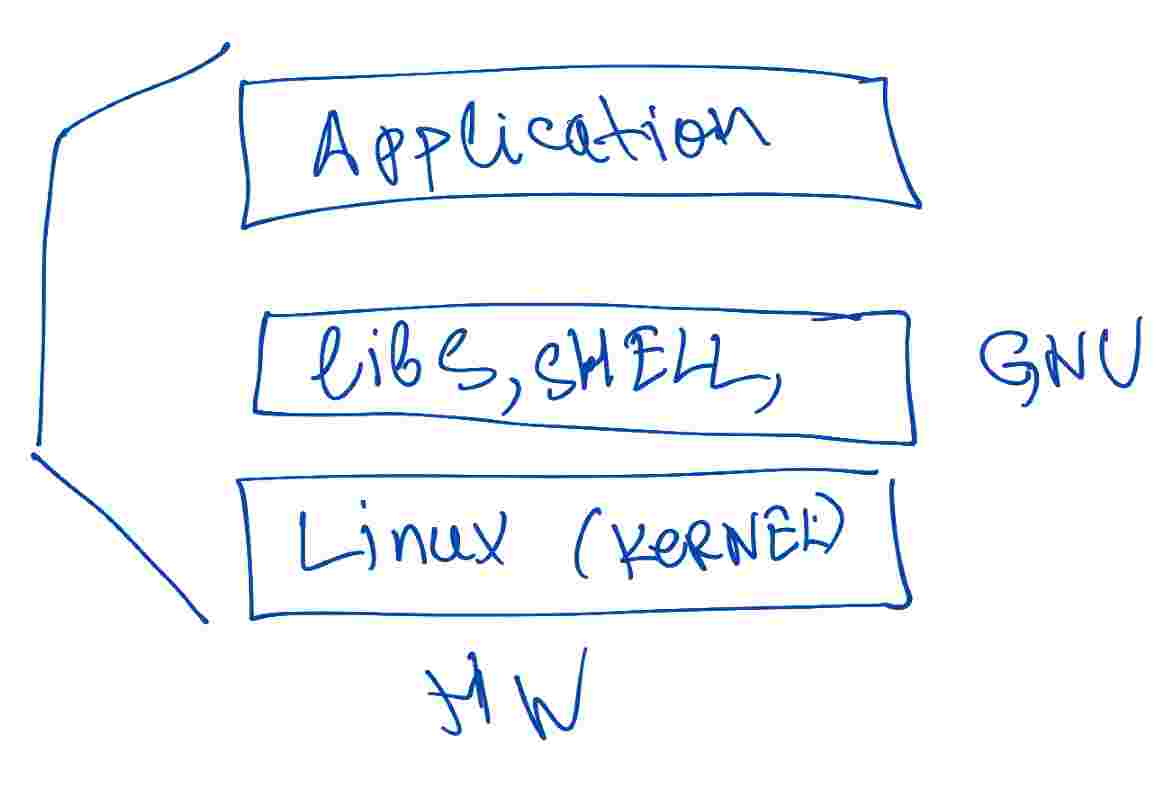 Application
libs, SHELL,
GNU
Linux (KERNEL)
HW